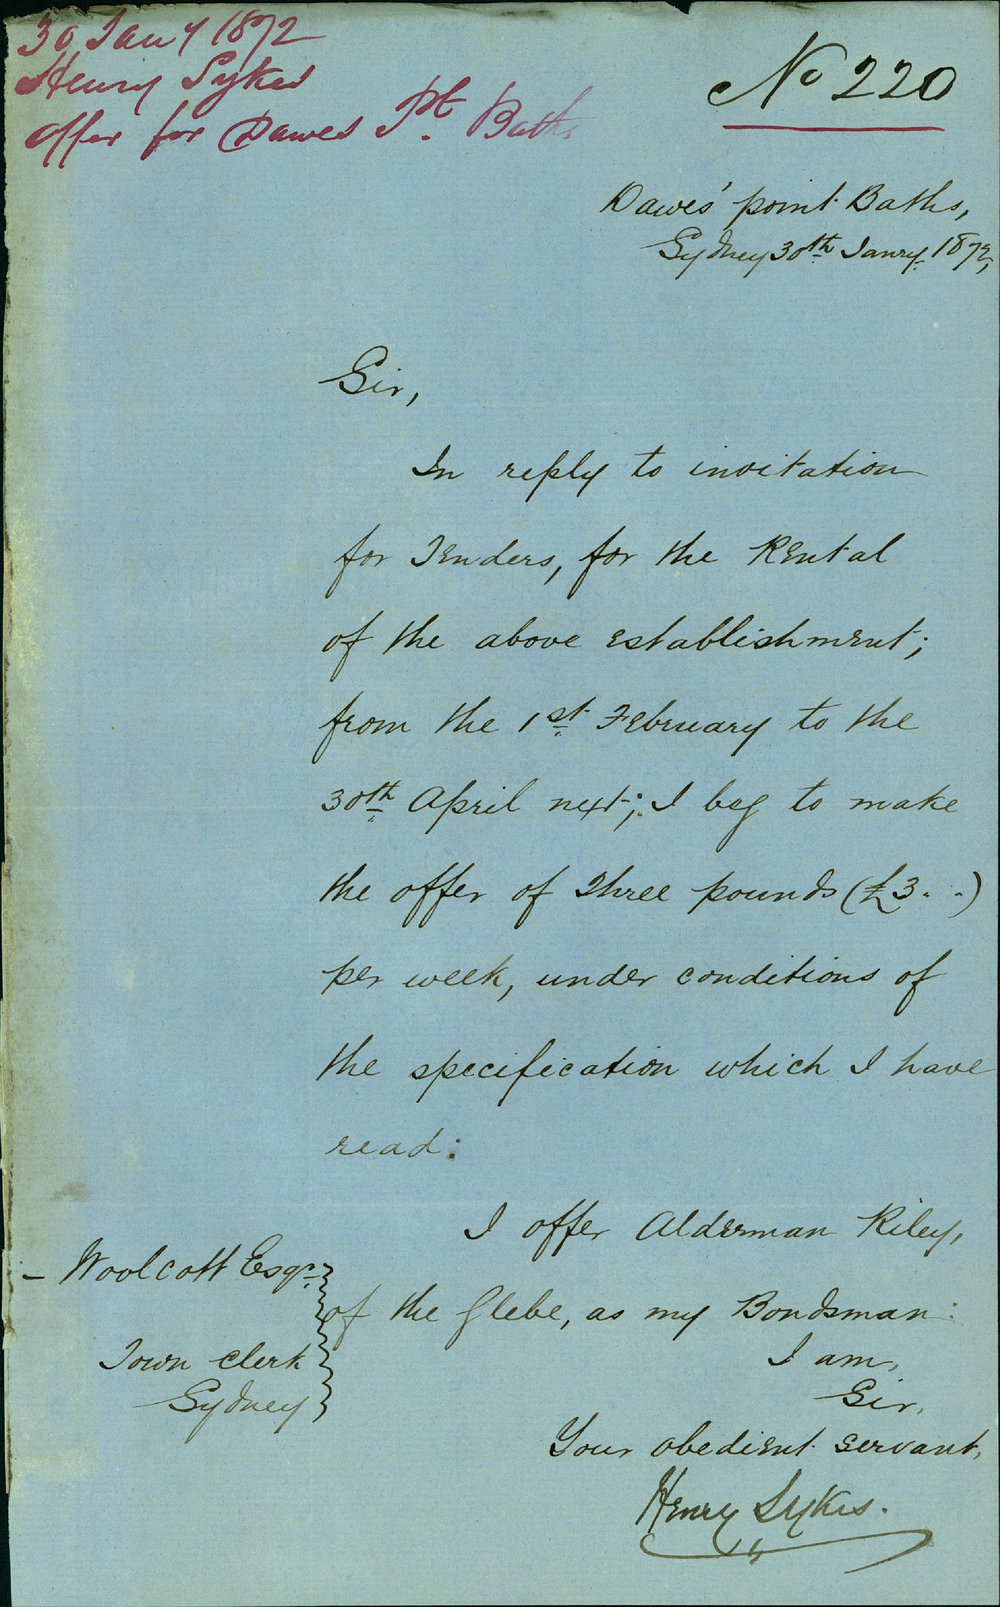 30 Jany 1872
Henry Sykes
Offer for Dawes Pt. Baths
No 220
Dawes' point Baths,
Sydney 30th Janry. 1872,
Sir,
In reply to invitation
for Tenders, for the Rental
of the above establishment;
from the 1st February to the
30th April next; I beg to make
the offer of Three pounds (£3 . .)
per week, under conditions of
the specification which I have
read:
I offer Alderman Riley,
of the Glebe, as my Bondsman:
I am,
Sir,
Your obedient servant,
Henry Sykes.
– Woolcott Esqr.
Town Clerk
Sydney